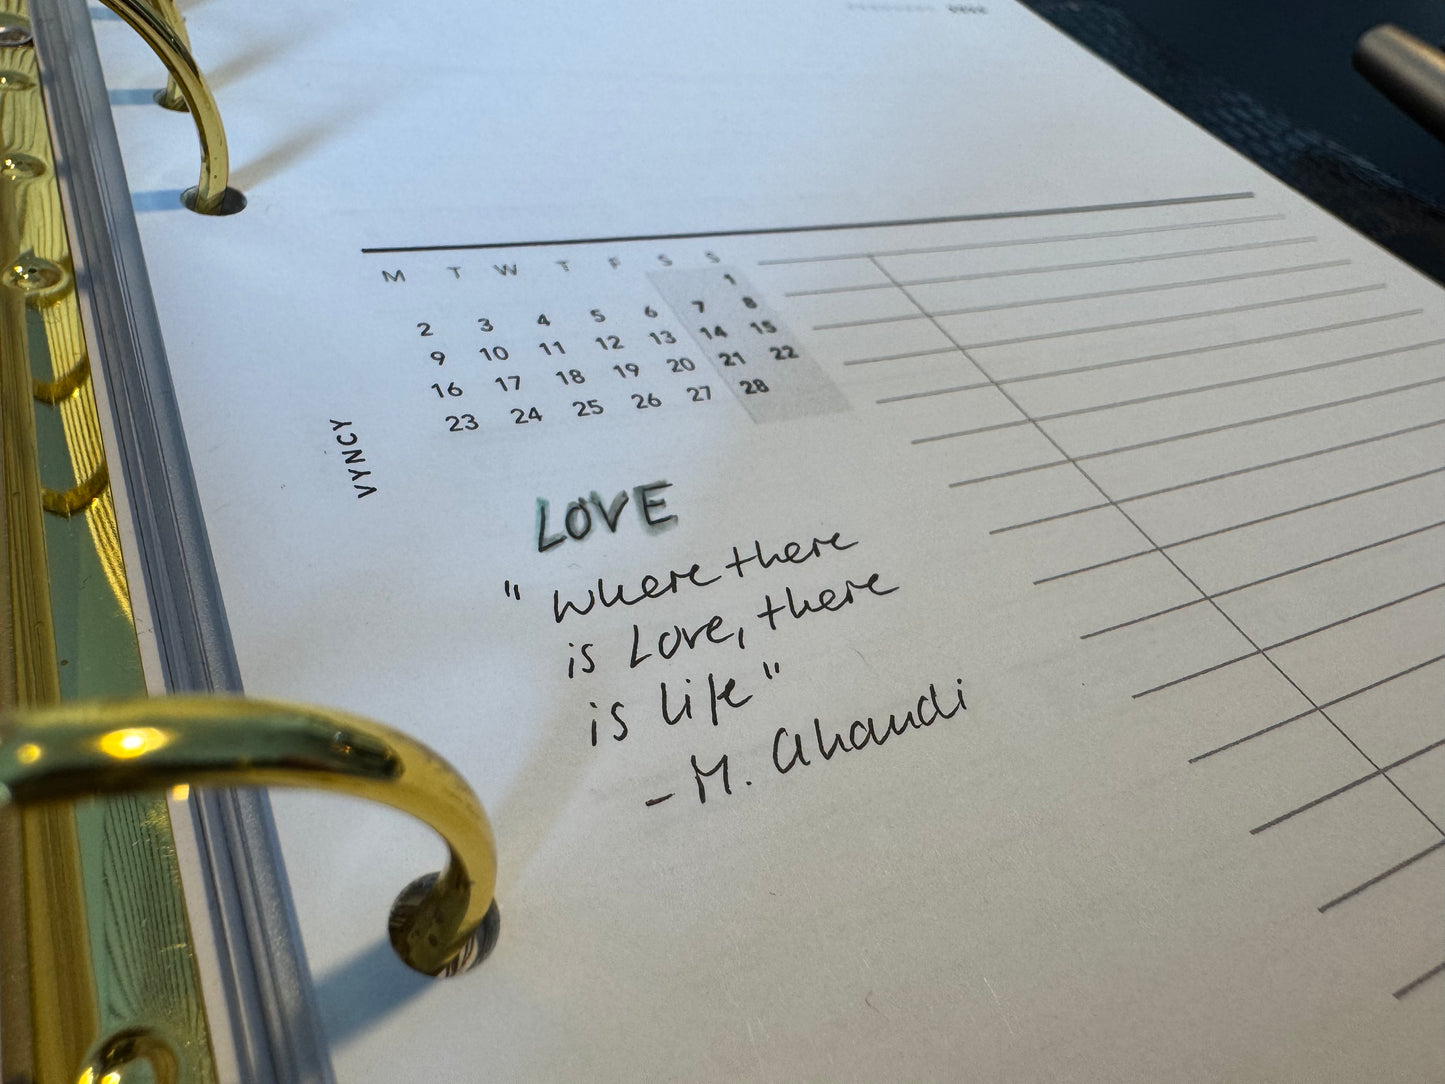 M T W T F S S
1
2 3 4 5 6 7 8
9 10 11 12 13 14 15
16 17 18 19 20 21 22
23 24 25 26 27 28
VYNCY
LOVE
" Where there
is Love, there
is life"
- M. Ghandi